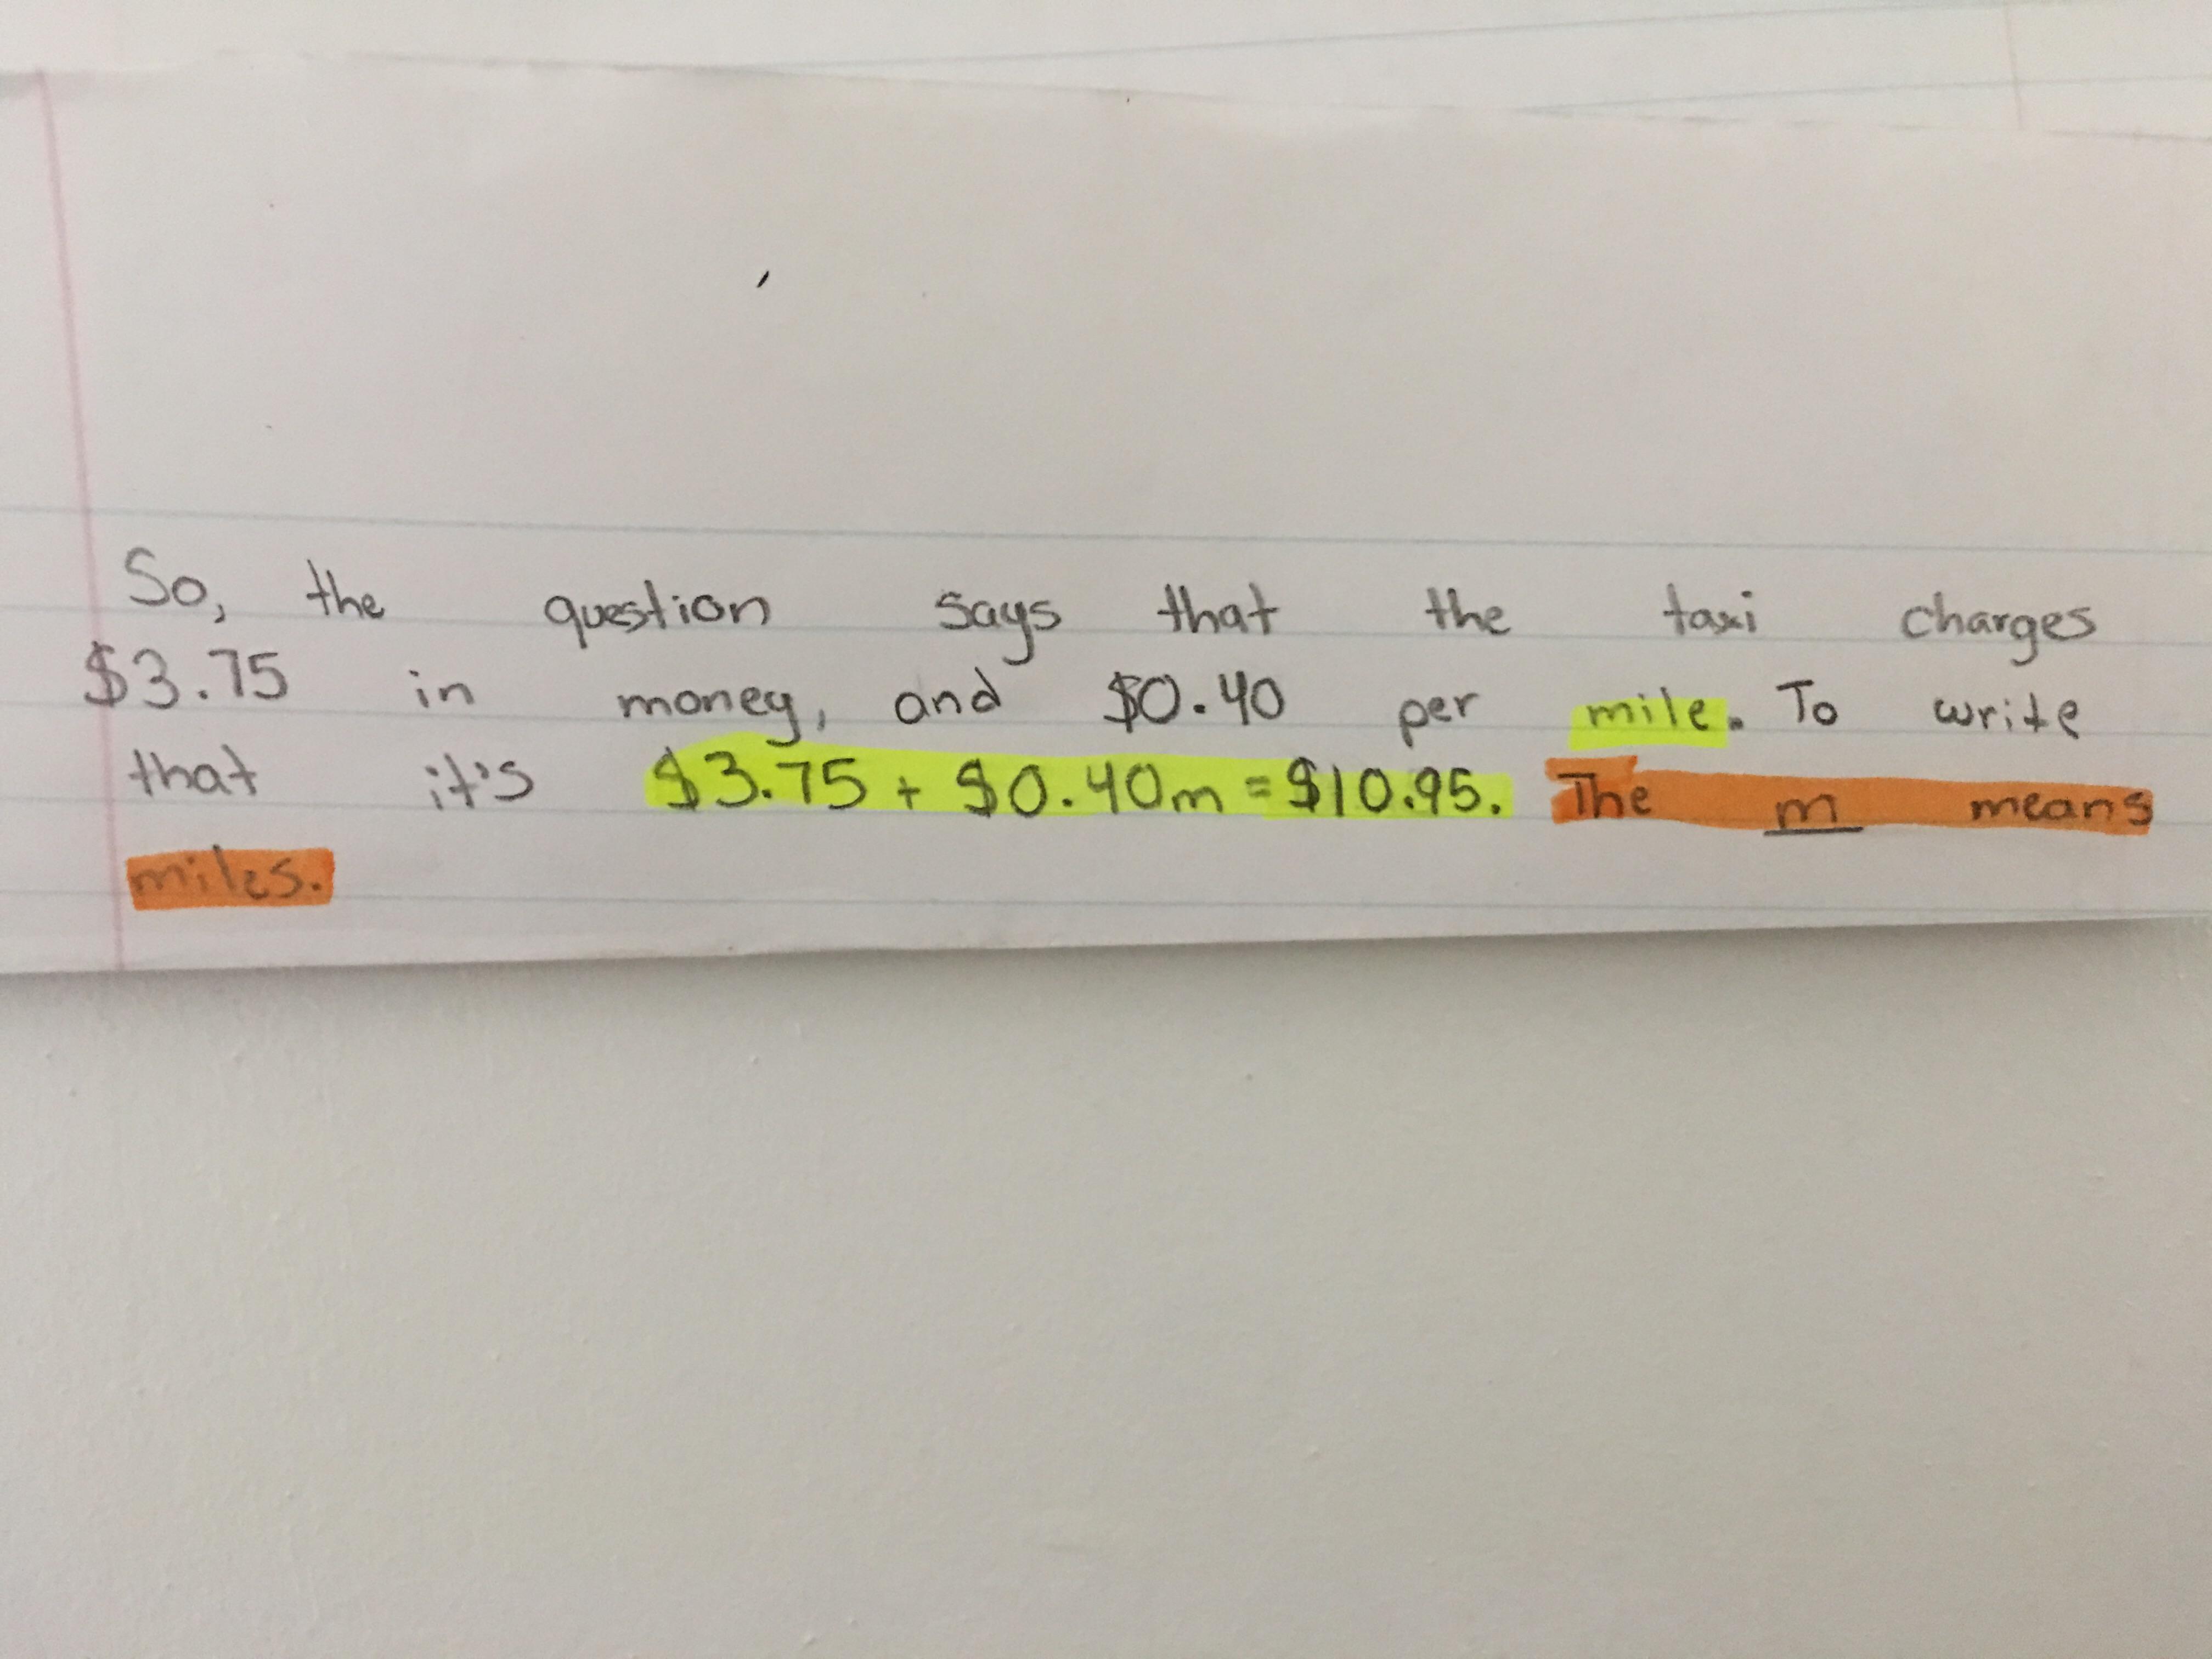 So, the question says that the taxi charges
$3.75 in money, and $0.40 per mile. To write
that it's $3.75 + $0.40m = $10.95. The m means
miles.